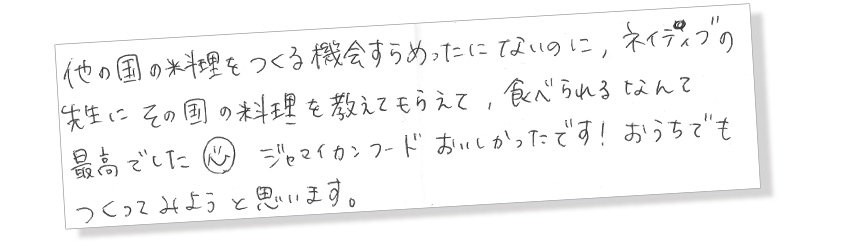 他の国の料理をつくる機会すらめったにないのに,ネイティブの
先生にその国の料理を教えてもらえて,食べられるなんて
最高でした☺ ジャマイカンフードおいしかったです!おうちでも
つくってみようと思います。